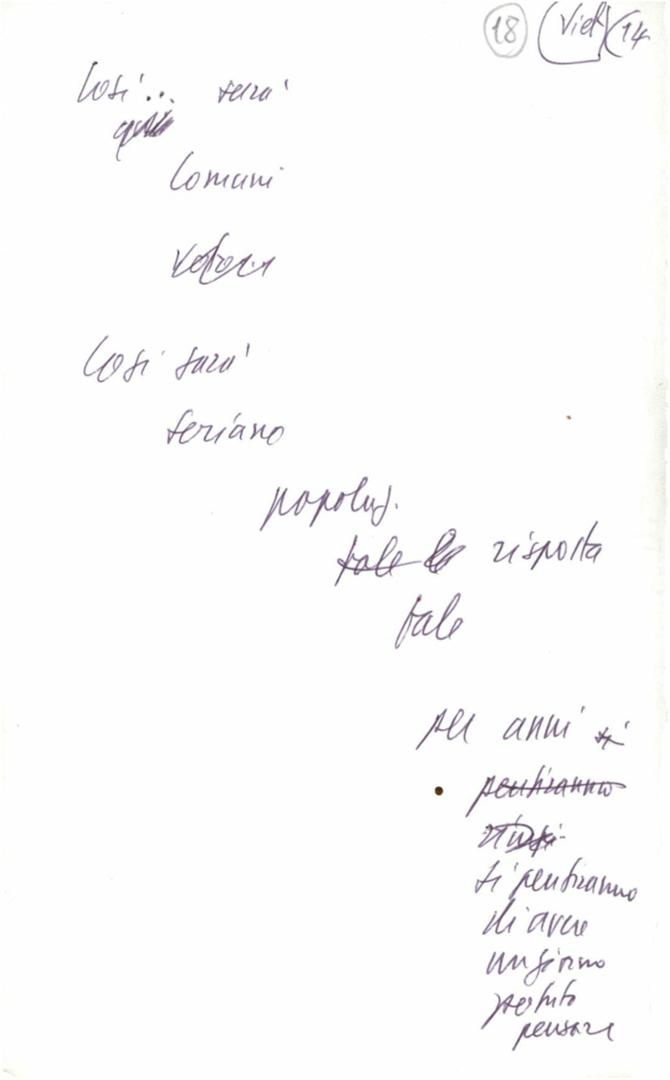 18 (Viet) (14
Così... sarà
Comuni
Così sarà
seriano
popolus.
tale la risposta
tale
per anni si
pentiranno
si pentiranno
di avere
un giorno
potuto
pensare